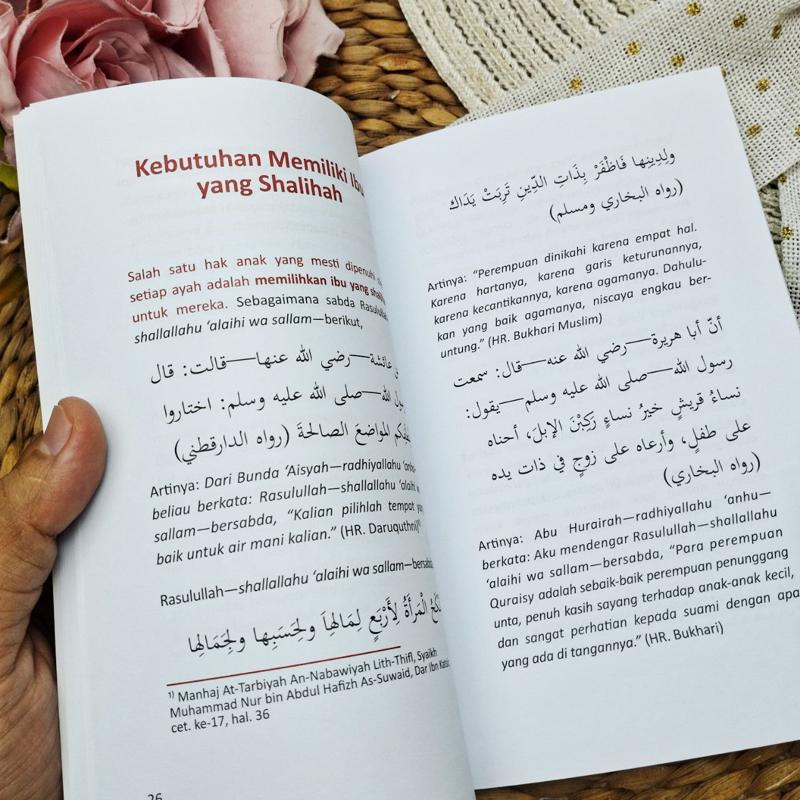 Kebutuhan Memiliki Ibu
yang Shalihah
Salah satu hak anak yang mesti dipenuhi
setiap ayah adalah memilihkan ibu yang
untuk mereka. Sebagaimana sabda
shallallahu 'alaihi wa sallam—berikut,
عائشة—رضي الله عنها—قالت: قال
الله—صلى الله عليه وسلم: اختاروا
المواضعَ الصالحةَ (رواه الدارقطني)
Artinya: Dari Bunda 'Aisyah—radhiyallahu
beliau berkata: Rasulullah—shallallahu 'alaihi
sallam—bersabda, "Kalian pilihlah tempat
baik untuk air mani kalian." (HR. Daruquthni)¹⁾
Rasulullah—shallallahu 'alaihi wa sallam—bersabda
الْمَرْأَةُ لِأَرْبَعٍ لِمَالِهَا وَلِحَسَبِهَا وَلِجَمَالِهَا
¹⁾ Manhaj At-Tarbiyah An-Nabawiyah Lith-Thifl, Syaikh
Muhammad Nur bin Abdul Hafizh As-Suwaid, Dar Ibn
cet. ke-17, hal. 36
26
ولِدِينِها فَاظْفَرْ بِذَاتِ الدِّينِ تَرِبَتْ يَدَاك
(رواه البخاري ومسلم)
Artinya: "Perempuan dinikahi karena empat hal.
Karena hartanya, karena garis keturunannya,
karena kecantikannya, karena agamanya. Dahulu-
kan yang baik agamanya, niscaya engkau ber-
untung." (HR. Bukhari Muslim)
أنّ أبا هريرة—رضي الله عنه—قال: سمعت
رسول الله—صلى الله عليه وسلم—يقول:
نساءُ قريشٍ خيرُ نساءٍ رَكِبْنَ الإبلَ، أحناه
على طفلٍ، وأرعاه على زوجٍ في ذات يده
(رواه البخاري)
Artinya: Abu Hurairah—radhiyallahu 'anhu—
berkata: Aku mendengar Rasulullah—shallallahu
'alaihi wa sallam—bersabda, "Para perempuan
Quraisy adalah sebaik-baik perempuan penunggang
unta, penuh kasih sayang terhadap anak-anak kecil,
dan sangat perhatian kepada suami dengan apa
yang ada di tangannya." (HR. Bukhari)